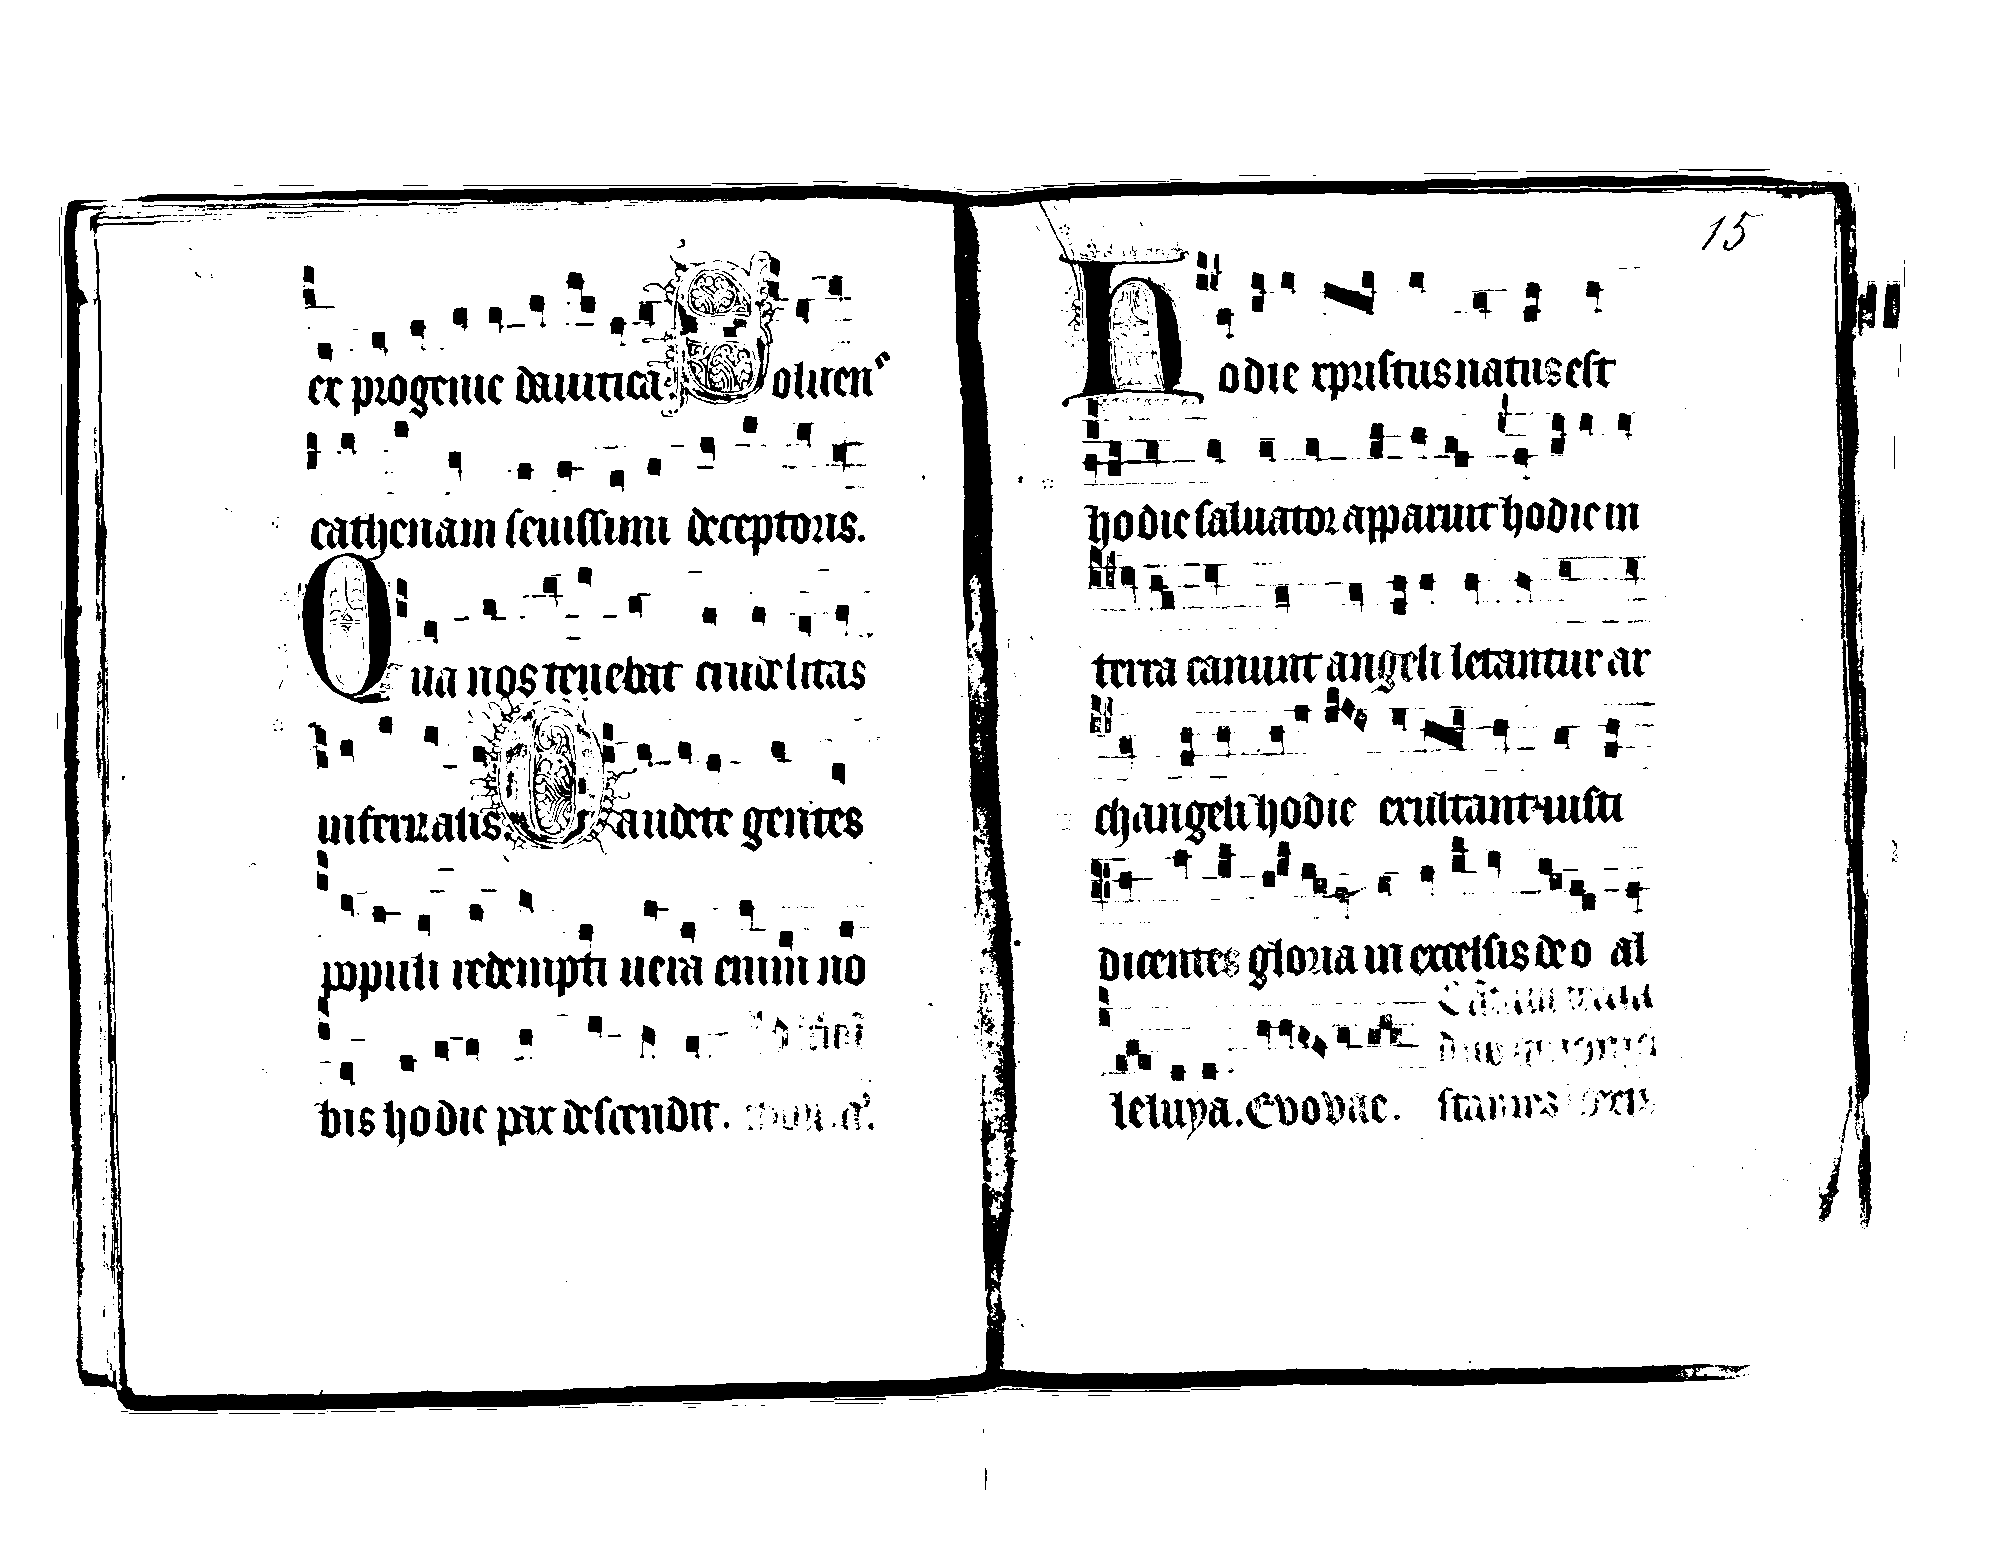 ex progenie dauitica. Soluens
cathenam seuissimi deceptoris.
Qua nos tenebat crudelitas
infernalis. Gaudete gentes
populi redempti uera enim no
bis hodie pax descendit.
15
Hodie xpristus natus est
hodie saluator apparuit hodie in
terra canunt angeli letantur ar
changeli hodie exultant iusti
dicentes gloria in excelsis deo al
leluya. Evovae.